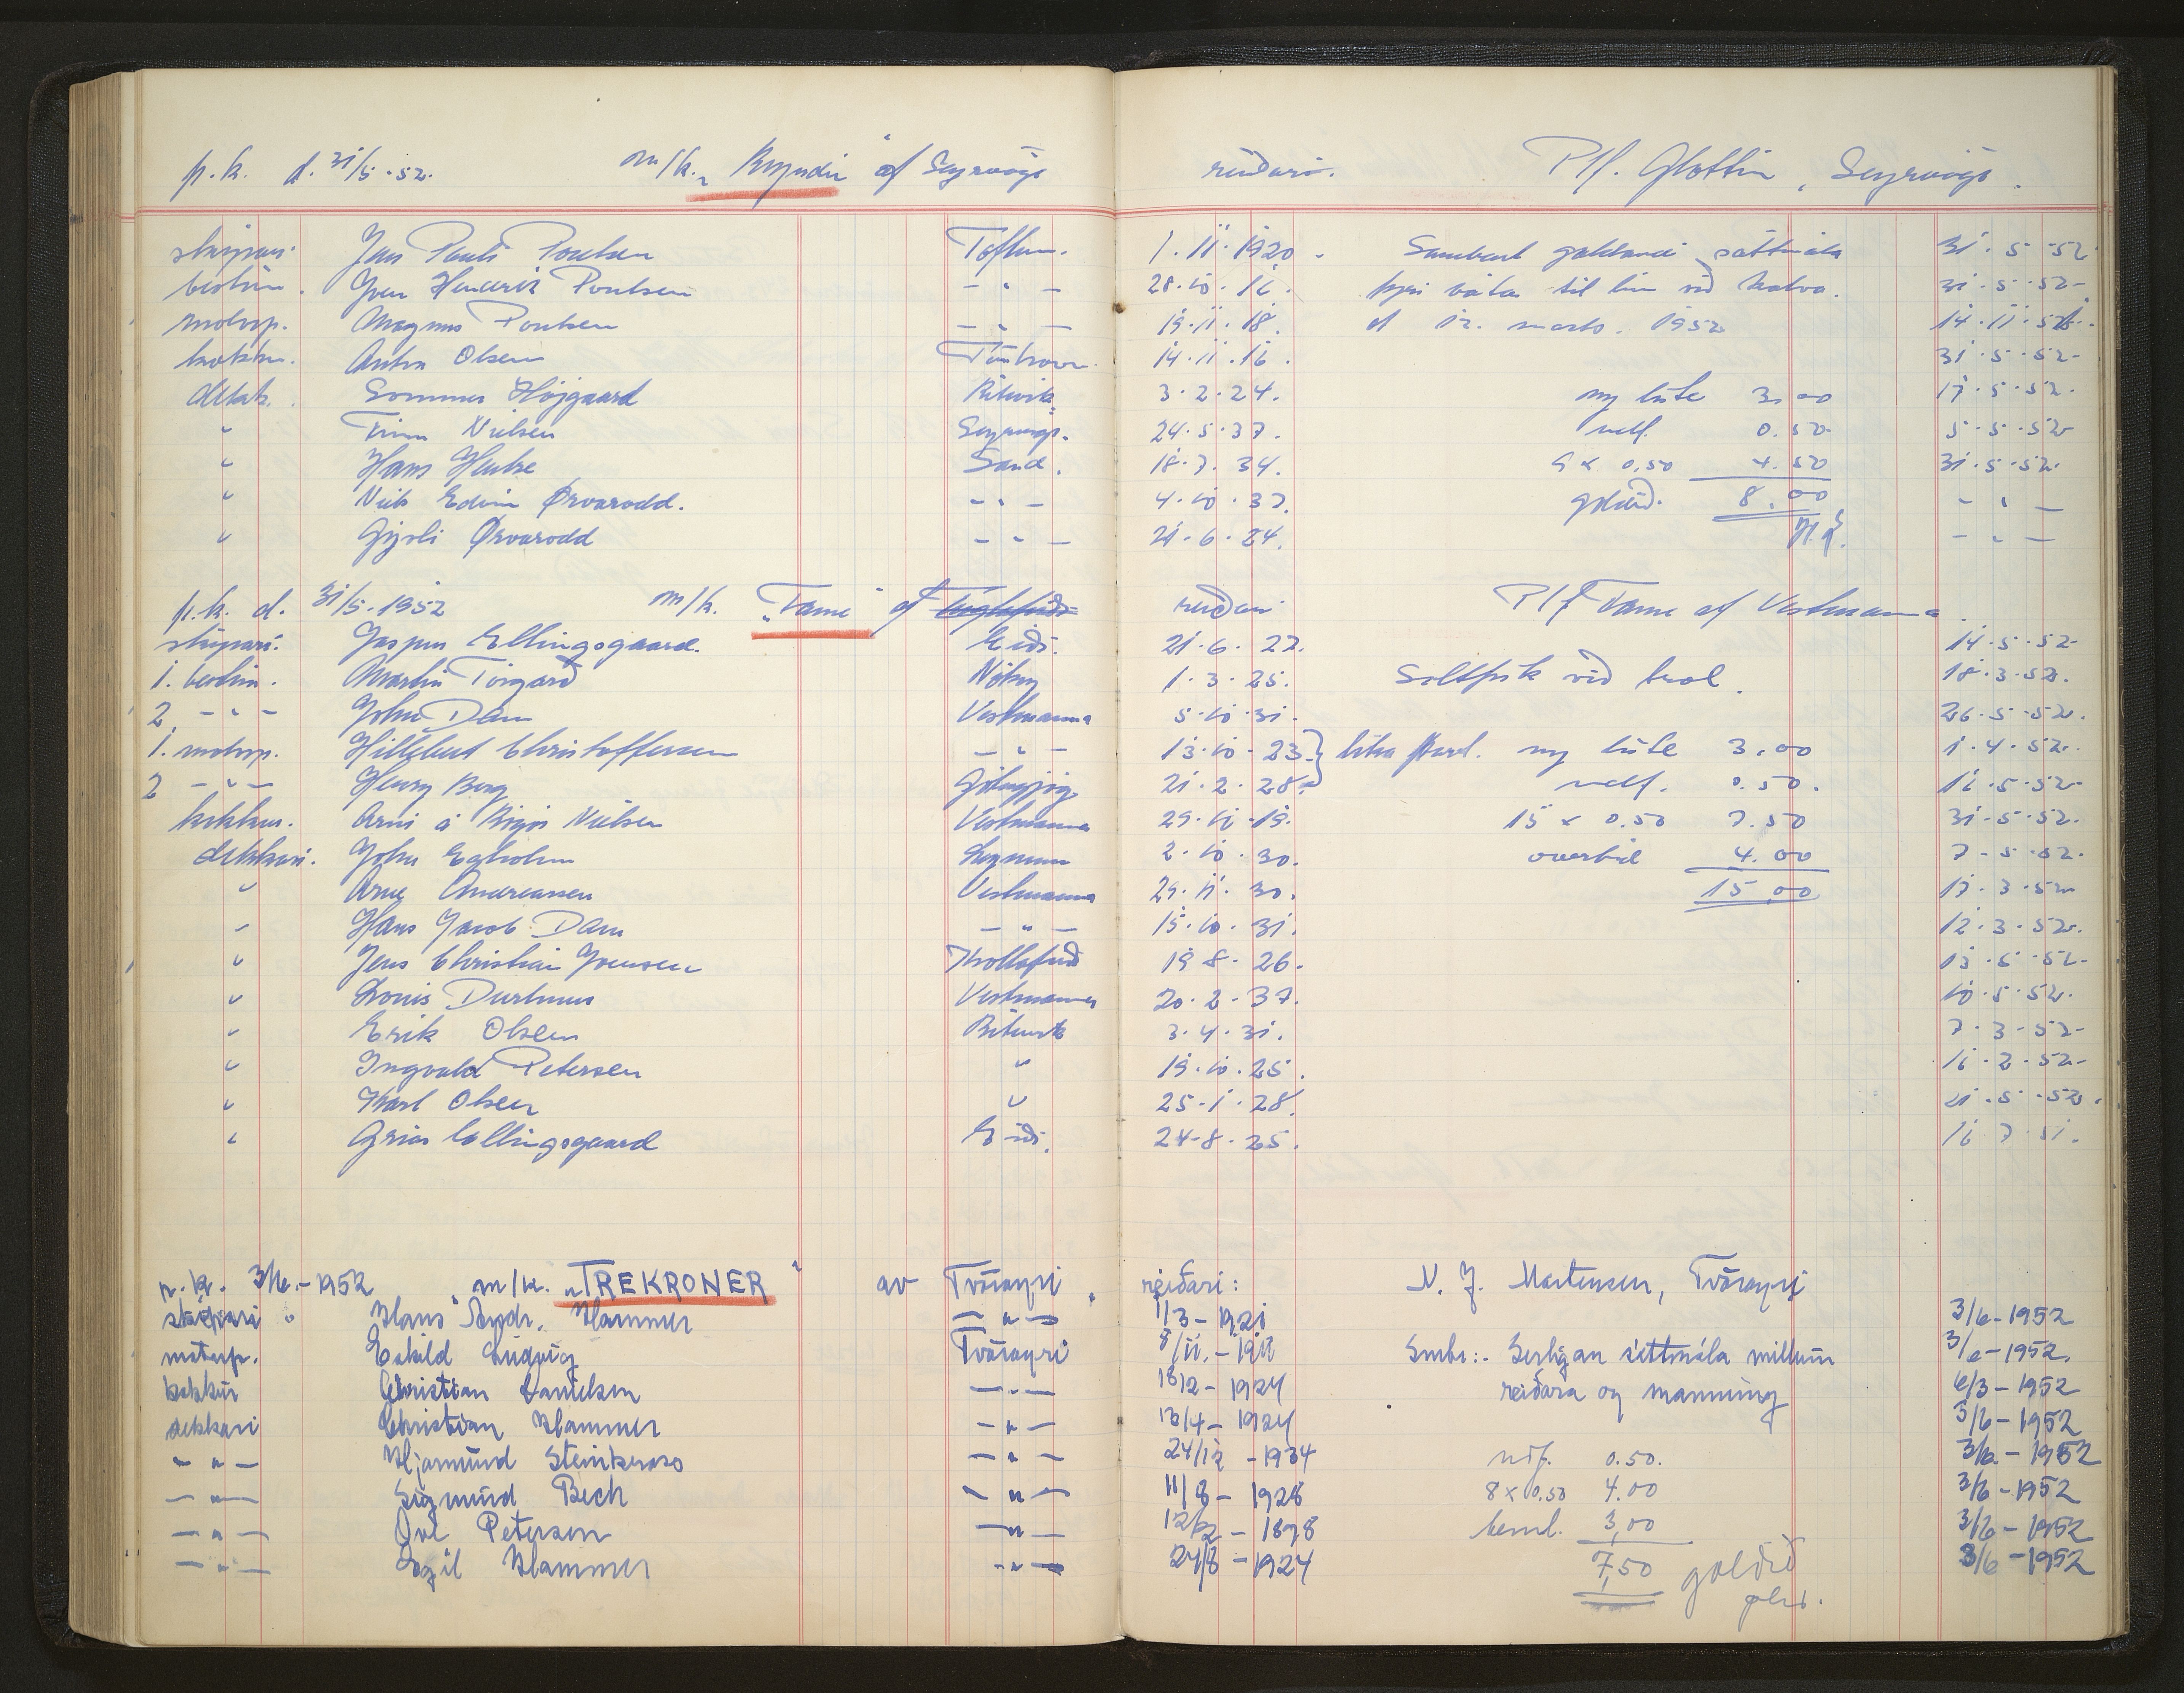 p.k. d. 31/5-52. m/k. „ Ryndin " af Seyrvági reiðari. P/f. Glottin, Seyrvági.
skipari. Jens Pauli Poulsen Toftum. 1.11.1920. Sambært galdandi sáttmála 31.5-52
bestim. Hendrik Poulsen - " - 28.10.16. fyri báta til lin við 31.5.52-
motorp. Magnus Poulsen - " - 19.11.18. d 12. marts. 1952 14.11.52.
kokkur. Anton Olsen Tórshavn. 14.11.16. 31.5.52-
dekk. Sommer Højgaard Rituvik 3.2.24. ny liste 3.00 17.5.52.
" Finn Nielsen Seyrvági. 24.5.37. 0.50 5.5.52
" Hans Sand. 18.7.34. 9 x 0.50 4.50 31.5.52.
" Edvin Ørvarodd. - " - 4.10.37. goldið. 8.00 - " -
" Ørvarodd - " - 21.6.24. - " -
p.k. d. 31/5.1952 m/k. „Fame" af reiðari P/f Fame af Vestmanna
skipari. Jaspur Ellingsgaard. Eiði. 21.6.22. 14.5.52-
1. bestim. Martin Torgarð 1.3.25. Saltfisk við trol. 18.3.52.
2. - " - John Dam Vestmanna 5.10.31. 26.5.52.
1. motorp. Hillebert Christoffersen - " - 13.10.23. ny liste 3.00 1.4.52.
2 - " - Henry Berg 21.2.28. 0.50. 16.5.52-
kokkur. Arni á Nielsen Vestmanna 29.10.19. 15 x 0.50 7.50 31.5.52.
dekkari. John Egholm 2.10.30. overtid 4.00 7-5.52.
" Arne Andreassen Vestmanna 29.11.30. 15,00 17.3.52
" Hans Jacob Dam - " - 15.10.31. 12.3.52.
" Jens Christian Joensen Kollafirð 19 8.26. 13.5.52-
" Louis Durhuus Vestmanna 20.2.37. 10.5.52.
" Erik Olsen Rituvik 3.4.31. 7.3-52-
" Ingvald Petersen " 19.10.25. 16.2.52-
" Karl Olsen " 25.1.28. 21.5.52.
" Ellingsgaard Eiði. 24-8.25. 16.7.51.
p.k. 3/6.-1952 m/k. „TREKRONER" av Tvöroyri. reiðari: N. J. Mortensen, Tvöroyri
skipari Hans Andr. Hammer - " - 1/3-1921 3/6-1952
motorp. Eskild Ludvig Tvöroyri 8/11.-1911 Smbr:. Serligan sáttmála millum 3/6-1952.
kokkur Christian Danielsen - " - 18/2-1924 reiðara og manning 6/3-1952
dekkari Christian Hammer - " - 13/4-1924 3/6-1952
- " - Hjarmund Steinkross - " - 24/12-1934 0.50. 3/6-1952
- " - Sigmund Bech - " - 11/8-1928 8 x 0.50 4.00 3/6-1952
- " - Ove Petersen - " - 12/2-1898 3,00 3/6-1952
- " - Egil Hammer - " - 24/8-1924 7,50 goldið 3/6-1952